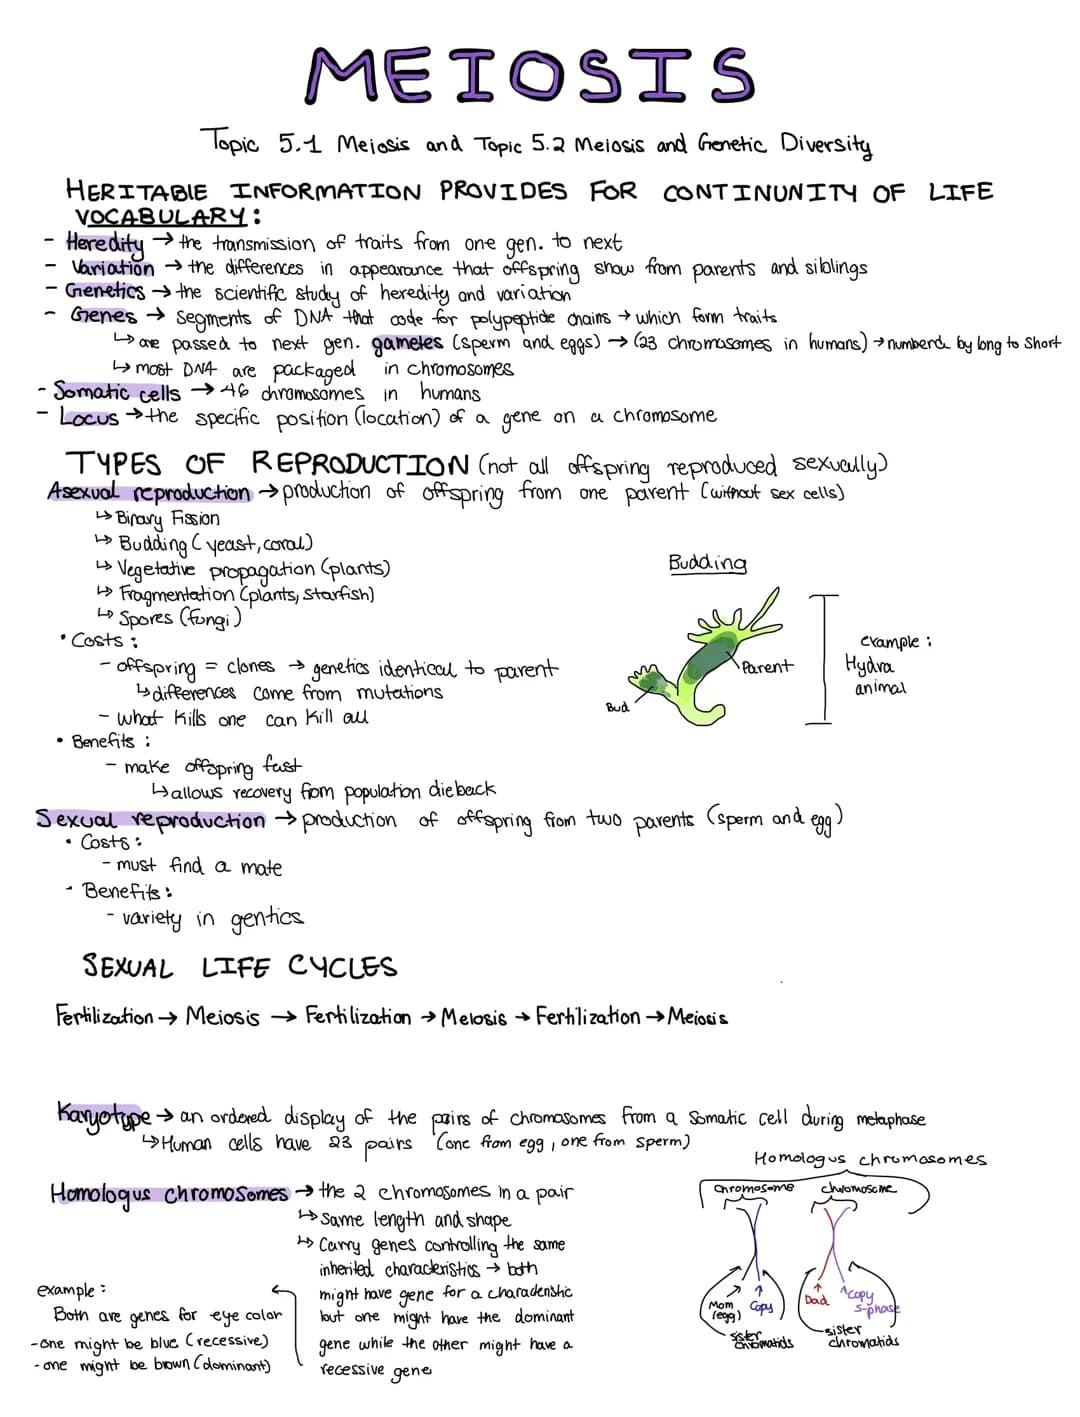 MEIOSIS
Topic 5.1 Meiosis and Topic 5.2 Meiosis and Genetic Diversity
HERITABLE INFORMATION PROVIDES FOR CONTINUNITY OF LIFE
VOCABULARY:
- Heredity → the transmission of traits from one gen. to next
- Variation → the differences in appearance that offspring show from parents and siblings
- Genetics → the scientific study of heredity and variation
- Genes → segments of DNA that code for polypeptide chains → which form traits
↳ are passed to next gen. gametes (sperm and eggs) → (23 chromosomes in humans) → numberd by long to short
↳ most DNA are packaged in chromosomes
- Somatic cells → 46 chromosomes in humans
- Locus → the specific position (location) of a gene on a chromosome
TYPES OF REPRODUCTION (not all offspring reproduced sexually)
Asexual reproduction → production of offspring from one parent (without sex cells)
↳ Binary Fission
↳ Budding (yeast, coral)
↳ Vegetative propagation (plants)
↳ Fragmentation (plants, starfish)
↳ Spores (fungi)
• Costs:
- offspring = clones → genetics identical to parent
↳ differences come from mutations
- what kills one can kill all
• Benefits:
- make offspring fast
↳ allows recovery from population dieback
Budding
Parent
Bud
example:
Hydra
animal
Sexual reproduction → production of offspring from two parents (sperm and egg)
• Costs:
- must find a mate
• Benefits:
- variety in gentics
SEXUAL LIFE CYCLES
Fertilization → Meiosis → Fertilization → Meiosis → Fertilization → Meiosis
Karyotype → an ordered display of the pairs of chromosomes from a somatic cell during metaphase
↳ Human cells have 23 pairs (one from egg, one from sperm)
Homologus chromosomes → the 2 chromosomes in a pair
↳ Same length and shape
↳ Carry genes controlling the same
inherited characteristics → both
might have gene for a charadenstic
but one might have the dominant
gene while the other might have a
recessive gene
example:
Both are genes for eye color
- one might be blue (recessive)
- one might be brown (dominant)
Homologus chromosomes
chromosome
chromosome
Mom
(egg)
Copy
sister
chromatids
Dad
copy
s-phase
sister
chromatids